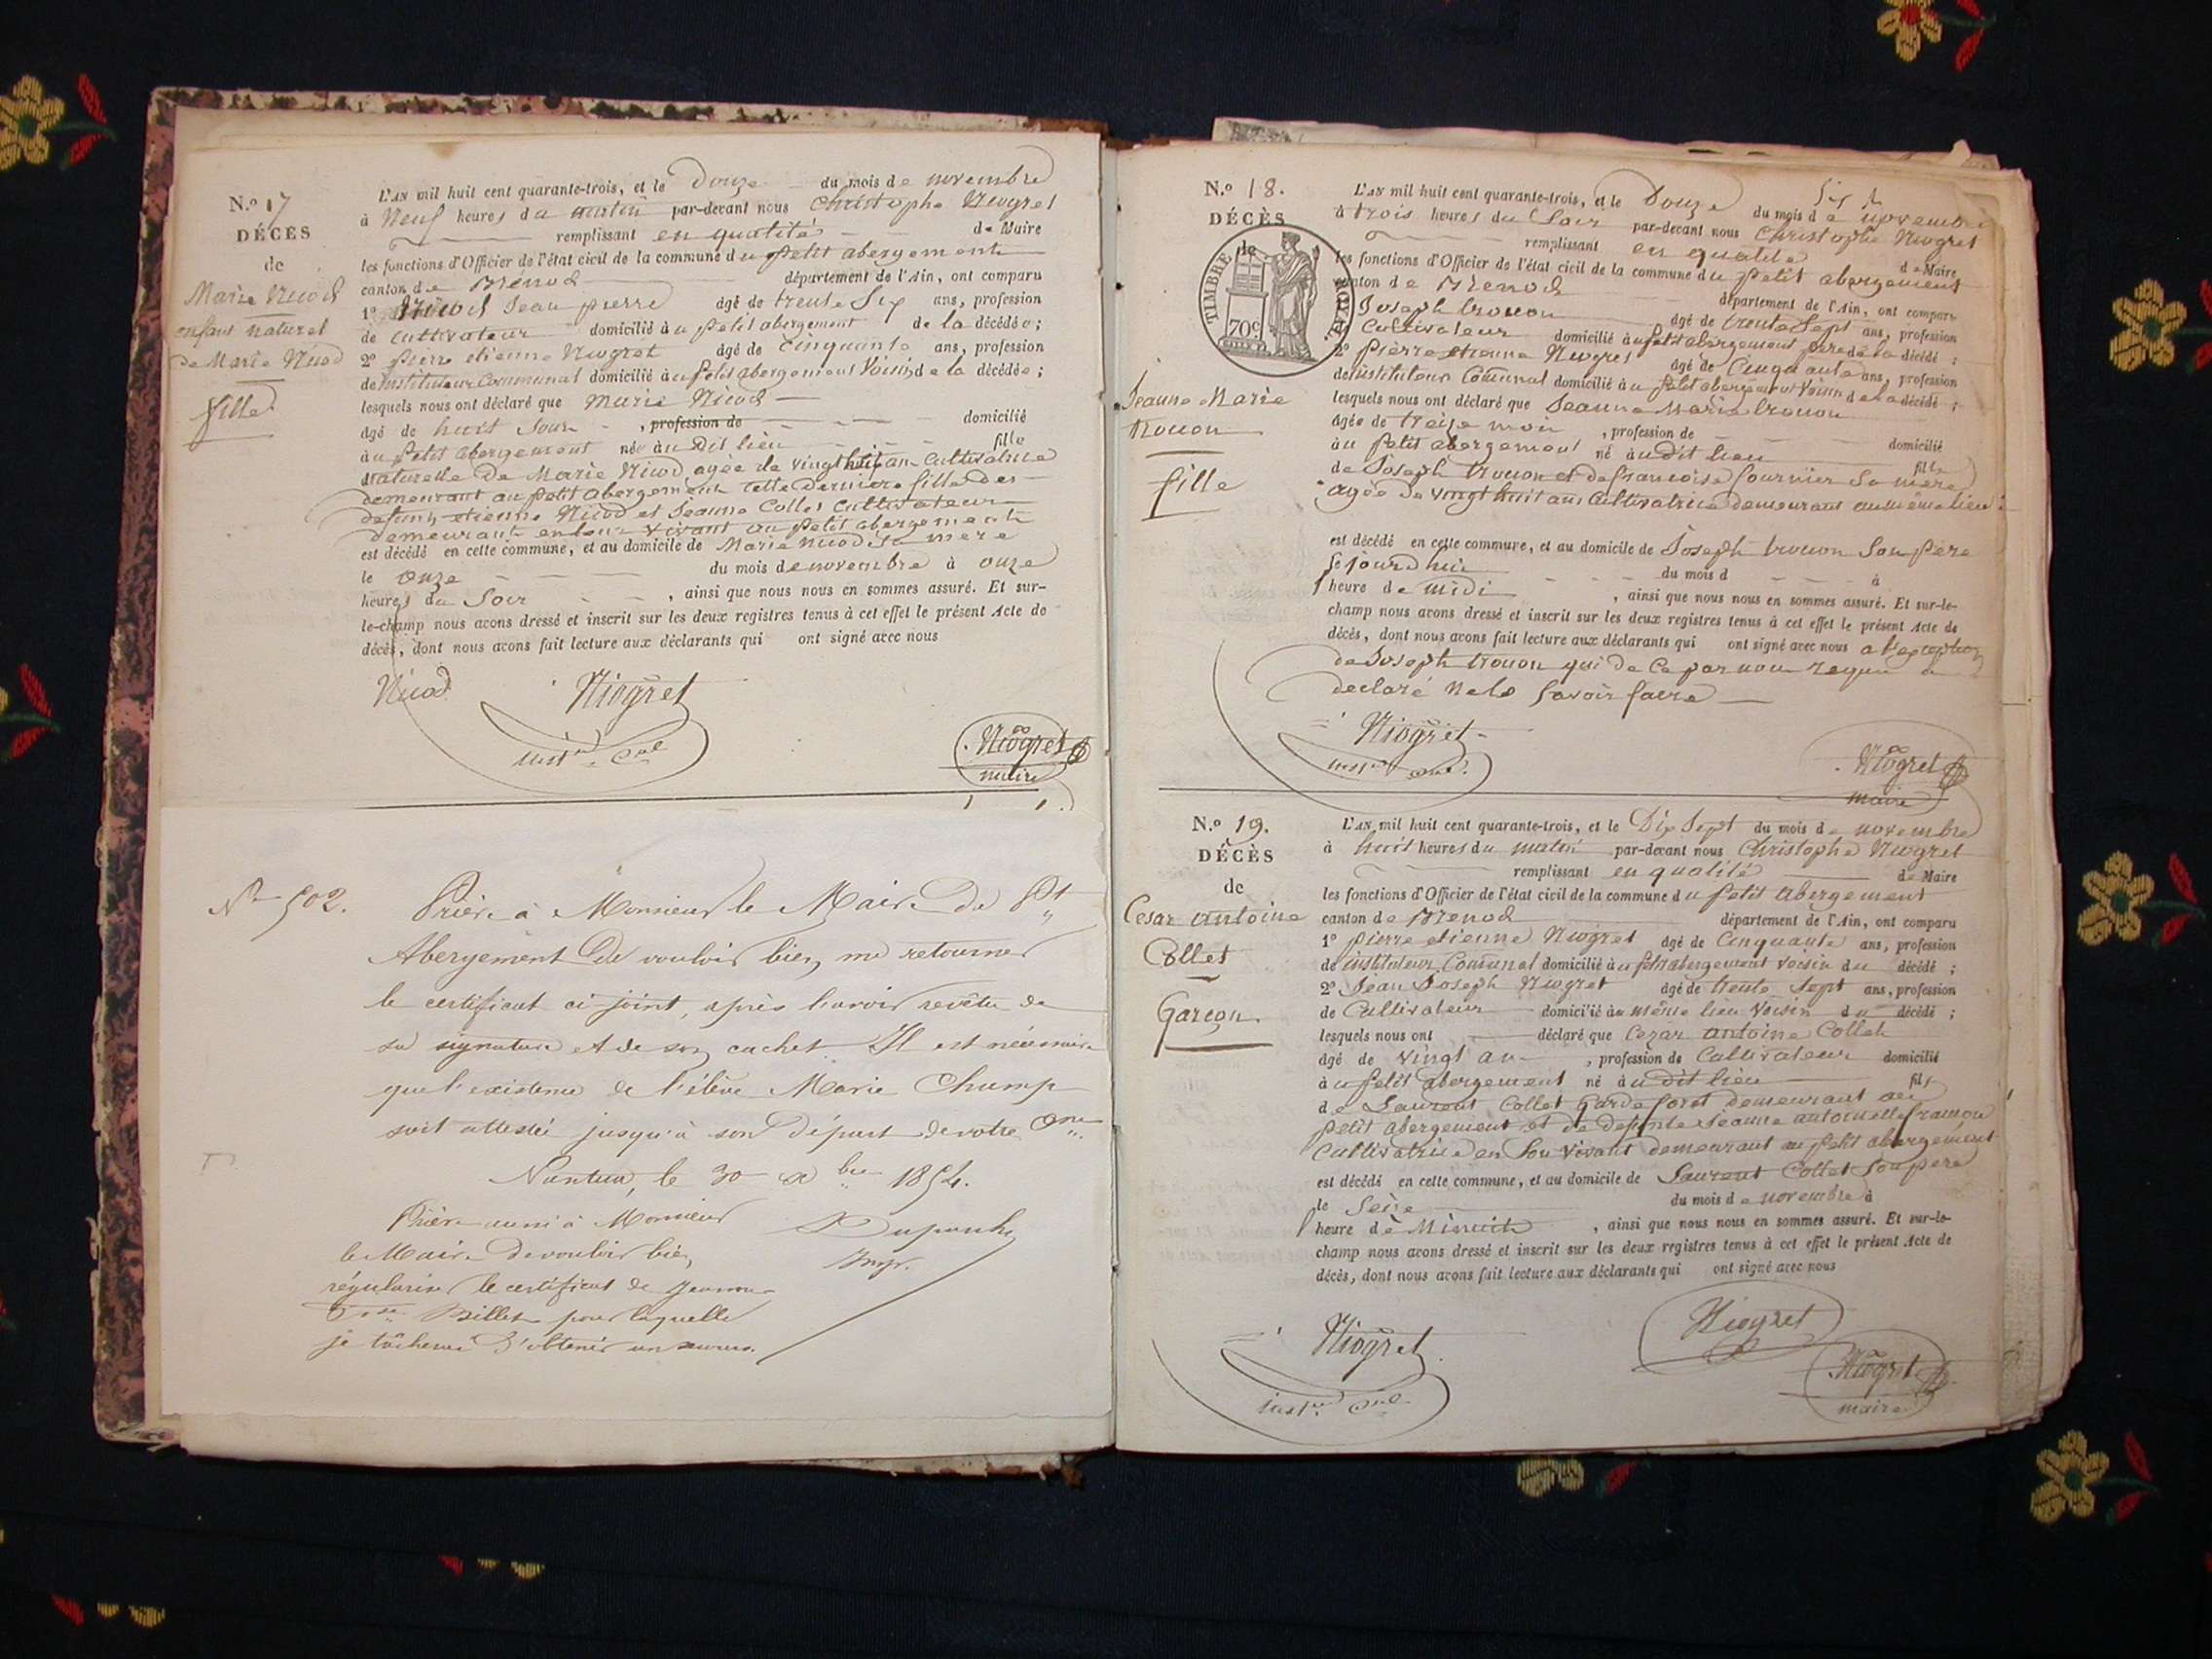 N.º 17
DÉCÈS
de
Marie Nicod
enfant naturel
de Marie Nicod
fille
L'AN mil huit cent quarante-trois, et le Douze du mois de novembre
à Neuf heures du matin par-devant nous Christophe Niogret
remplissant en qualité de Maire
les fonctions d'Officier de l'état civil de la commune du petit abergement
canton de Brénod département de l'Ain, ont comparu
1º Nicod Jean pierre âgé de trente Six ans, profession
de cultivateur domicilié à u petit abergement de la décédée;
2º pierre etienne Niogret âgé de cinquante ans, profession
de instituteur Communal domicilié à u petit abergement Voisin de la décédée;
lesquels nous ont déclaré que Marie Nicod
âgé de huit Jour , profession de domicilié
à u petit abergement né à u Dit lieu fille
naturelle de Marie Nicod agée de vingt huit an Cultivatrice
demeurant au petit abergement Cette derniere fille des
defunts etienne Nicod et Jeanne Collet Cultivateur
demeurant en leur vivant au petit abergement
est décédé en cette commune, et au domicile de Marie Nicod Sa mere
le onze du mois de novembre à onze
heures du Soir , ainsi que nous nous en sommes assuré. Et sur-
le-champ nous avons dressé et inscrit sur les deux registres tenus à cet effet le présent Acte de
décès, dont nous avons fait lecture aux déclarants qui ont signé avec nous
Nicod Niogret
inst.ur Cal
Niogret
maire
Nº 502.
Prière à Monsieur le Maire du Pt
Abergement de vouloir bien me retourner
le certificat ci-joint, après l'avoir revêtu de
sa signature et de son cachet. Il est nécessaire
que l'existence de l'élève Marie Champ
soit attestée jusqu'à son départ de votre Cne
Nantua, le 30 Xbre 1854.
Prière aussi à Monsieur
le Maire de vouloir bien
régulariser le certificat de Jeanne
Billet pour laquelle
je tâcherai d'obtenir un secours.
N.º 18.
DÉCÈS
de
TIMBRE ROYAL
70c
Jeanne Marie
trouon
fille
L'AN mil huit cent quarante-trois, et le Douze du mois de novembre
à trois heures du Soir par-devant nous Christophe Niogret
remplissant en qualité de Maire
les fonctions d'Officier de l'état civil de la commune du petit abergement
canton de Brenod département de l'Ain, ont comparu
Joseph trouon âgé de trente Sept ans, profession
Cultivateur domicilié à u petit abergement pere de la décédé ;
2º pierre etienne Niogret âgé de Cinquante ans, profession
de instituteur Communal domicilié à u petit abergement Voisin de la décédé ;
lesquels nous ont déclaré que Jeanne Marie trouon
âgée de treize mois , profession de domicilié
à u petit abergement né à u dit lieu fille
de Joseph trouon et de francoise fournier Sa mere
agée de vingt huit ans Cultivatrice demeurant au même lieu
est décédé en cette commune, et au domicile de Joseph trouon Son pere
Cejourdhui du mois d à
1 heure de midi , ainsi que nous nous en sommes assuré. Et sur-le-
champ nous avons dressé et inscrit sur les deux registres tenus à cet effet le présent Acte de
décès, dont nous avons fait lecture aux déclarants qui ont signé avec nous a l'exception
de Joseph trouon qui de Ce par nous requis a
declaré ne le Savoir faire
Niogret
inst.ur Cal
Niogret
maire
N.º 19.
DÉCÈS
de
Cesar antoine
Collet
Garcon
L'AN mil huit cent quarante-trois, et le Dix Sept du mois de novembre
à huit heures du matin par-devant nous Christophe Niogret
remplissant en qualité de Maire
les fonctions d'Officier de l'état civil de la commune du petit abergement
canton de Brenod département de l'Ain, ont comparu
1º pierre etienne Niogret âgé de Cinquante ans, profession
de instituteur Communal domicilié à u petit abergement voisin du décédé ;
2º Jean Joseph Niogret âgé de trente Sept ans, profession
de Cultivateur domicilié à u même lieu Voisin du décédé ;
lesquels nous ont déclaré que Cezar antoine Collet
âgé de vingt an , profession de Cultivateur domicilié
à u petit abergement né à u dit lieu fils
de Laurent Collet garde foret demeurant au
petit abergement et de defunte Jeanne antoinette
Cultivatrice en Son vivant demeurant au petit abergement
est décédé en cette commune, et au domicile de Laurent Collet Son pere
le Seize du mois de novembre à
1 heure de Minuit , ainsi que nous nous en sommes assuré. Et sur-le-
champ nous avons dressé et inscrit sur les deux registres tenus à cet effet le présent Acte de
décès, dont nous avons fait lecture aux déclarants qui ont signé avec nous
Niogret
inst.ur Cal
Niogret
Niogret
maire